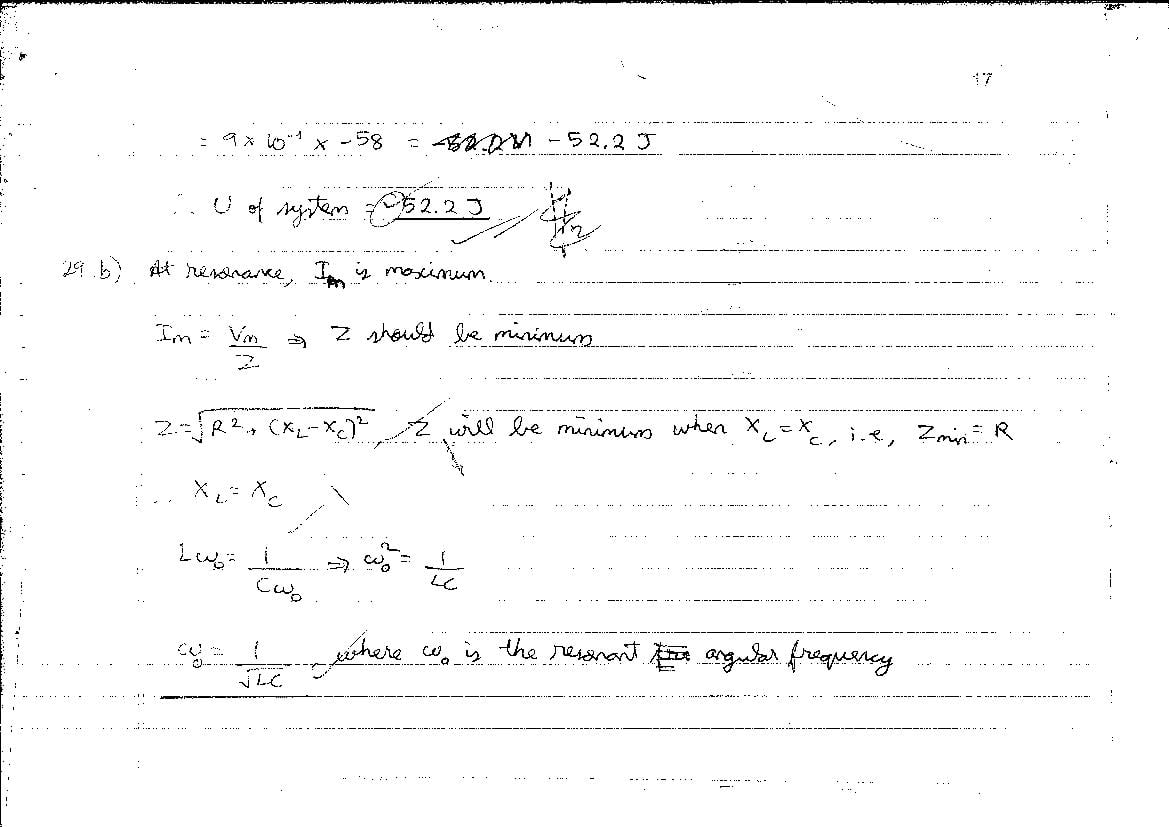 17
= 9 × 10⁻¹ × -58 = -52.2 J
∴ U of system = -52.2 J
29.b) At resonance, Im is maximum.
Im = Vm/Z ⇒ Z should be minimum
Z = √(R² + (X_L - X_C)²), Z will be minimum when X_L = X_C, i.e, Zmin = R
∴ X_L = X_C
Lω₀ = 1/(Cω₀) ⇒ ω₀² = 1/LC
ω₀ = 1/√LC, where ω₀ is the resonant angular frequency